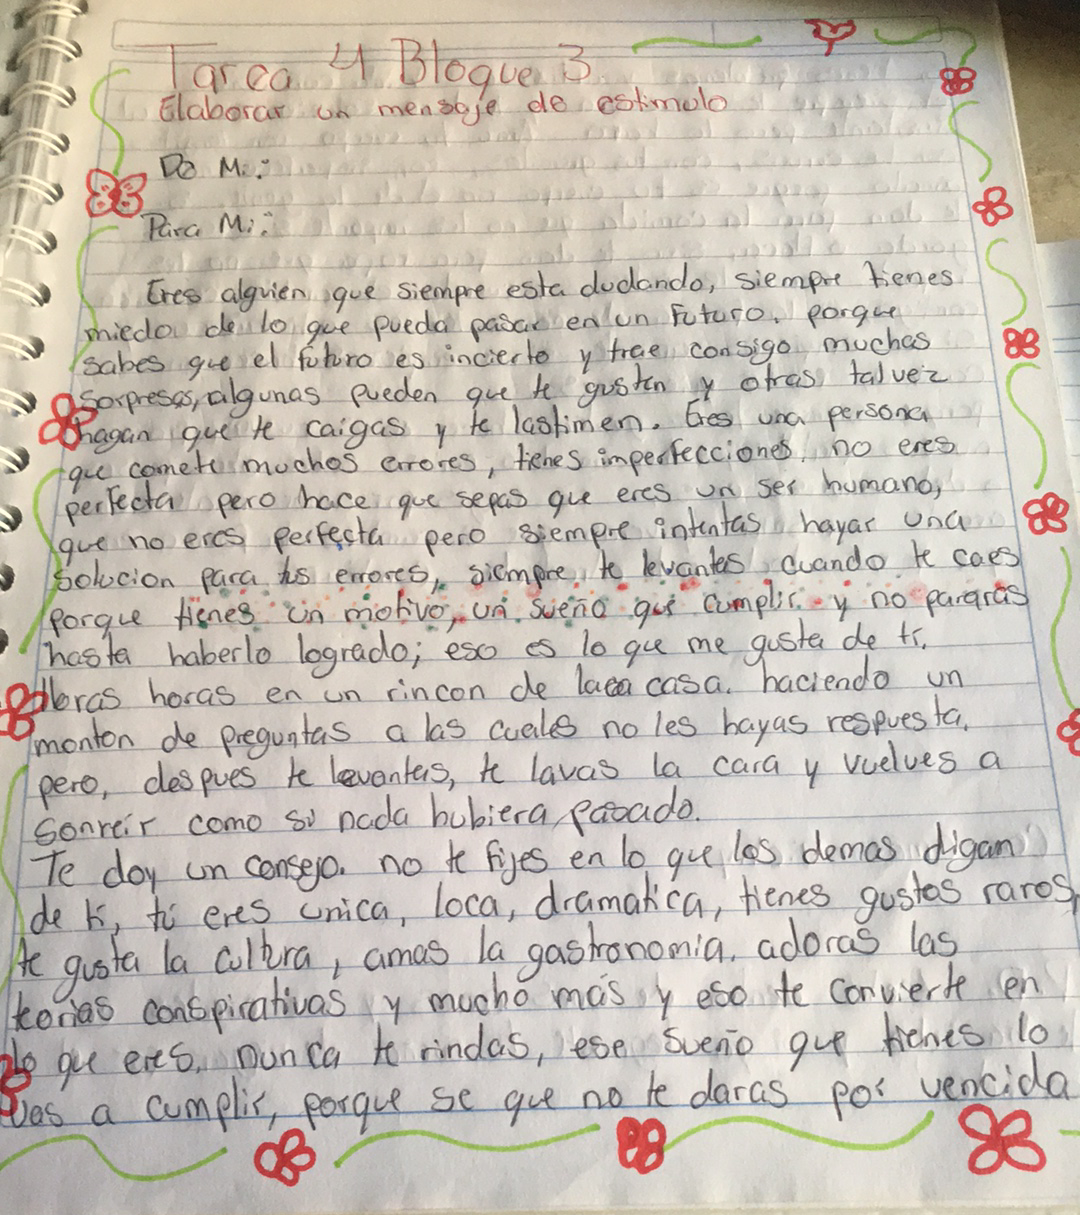 Tarea 4 Bloque 3
Elaborar un mensaje de estimulo
De Mi:
Para Mi:
Eres alguien que siempre esta dudando, siempre tienes
miedo de lo que pueda pasar en un futuro, porque
sabes que el futuro es incierto y trae consigo muchas
sorpresas, algunas pueden que te gusten y otras talvez
hagan que te caigas y te lastimen. Eres una persona
que comete muchos errores, tienes imperfecciones, no eres
perfecta pero hace que sepas que eres un ser humano,
que no eres perfecta pero siempre intentas hayar una
solucion para tus errores, siempre te levantes cuando te caes
porque tienes un motivo, un sueño que cumplir y no pararás
hasta haberlo logrado; eso es lo que me gusta de ti.
lloras horas en un rincon de la casa. haciendo un
monton de preguntas a las cuales no les hayas respuesta,
pero, despues te levantas, te lavas la cara y vuelves a
sonreír como si nada hubiera pasado.
Te doy un consejo. no te fijes en lo que los demas digan
de ti, tú eres unica, loca, dramatica, tienes gustos raros,
te gusta la cultura, amas la gastronomia, adoras las
teorias conspirativas y mucho más y eso te convierte en
lo que eres, nunca te rindas, ese sueño que tienes lo
vas a cumplir, porque se que no te daras por vencida